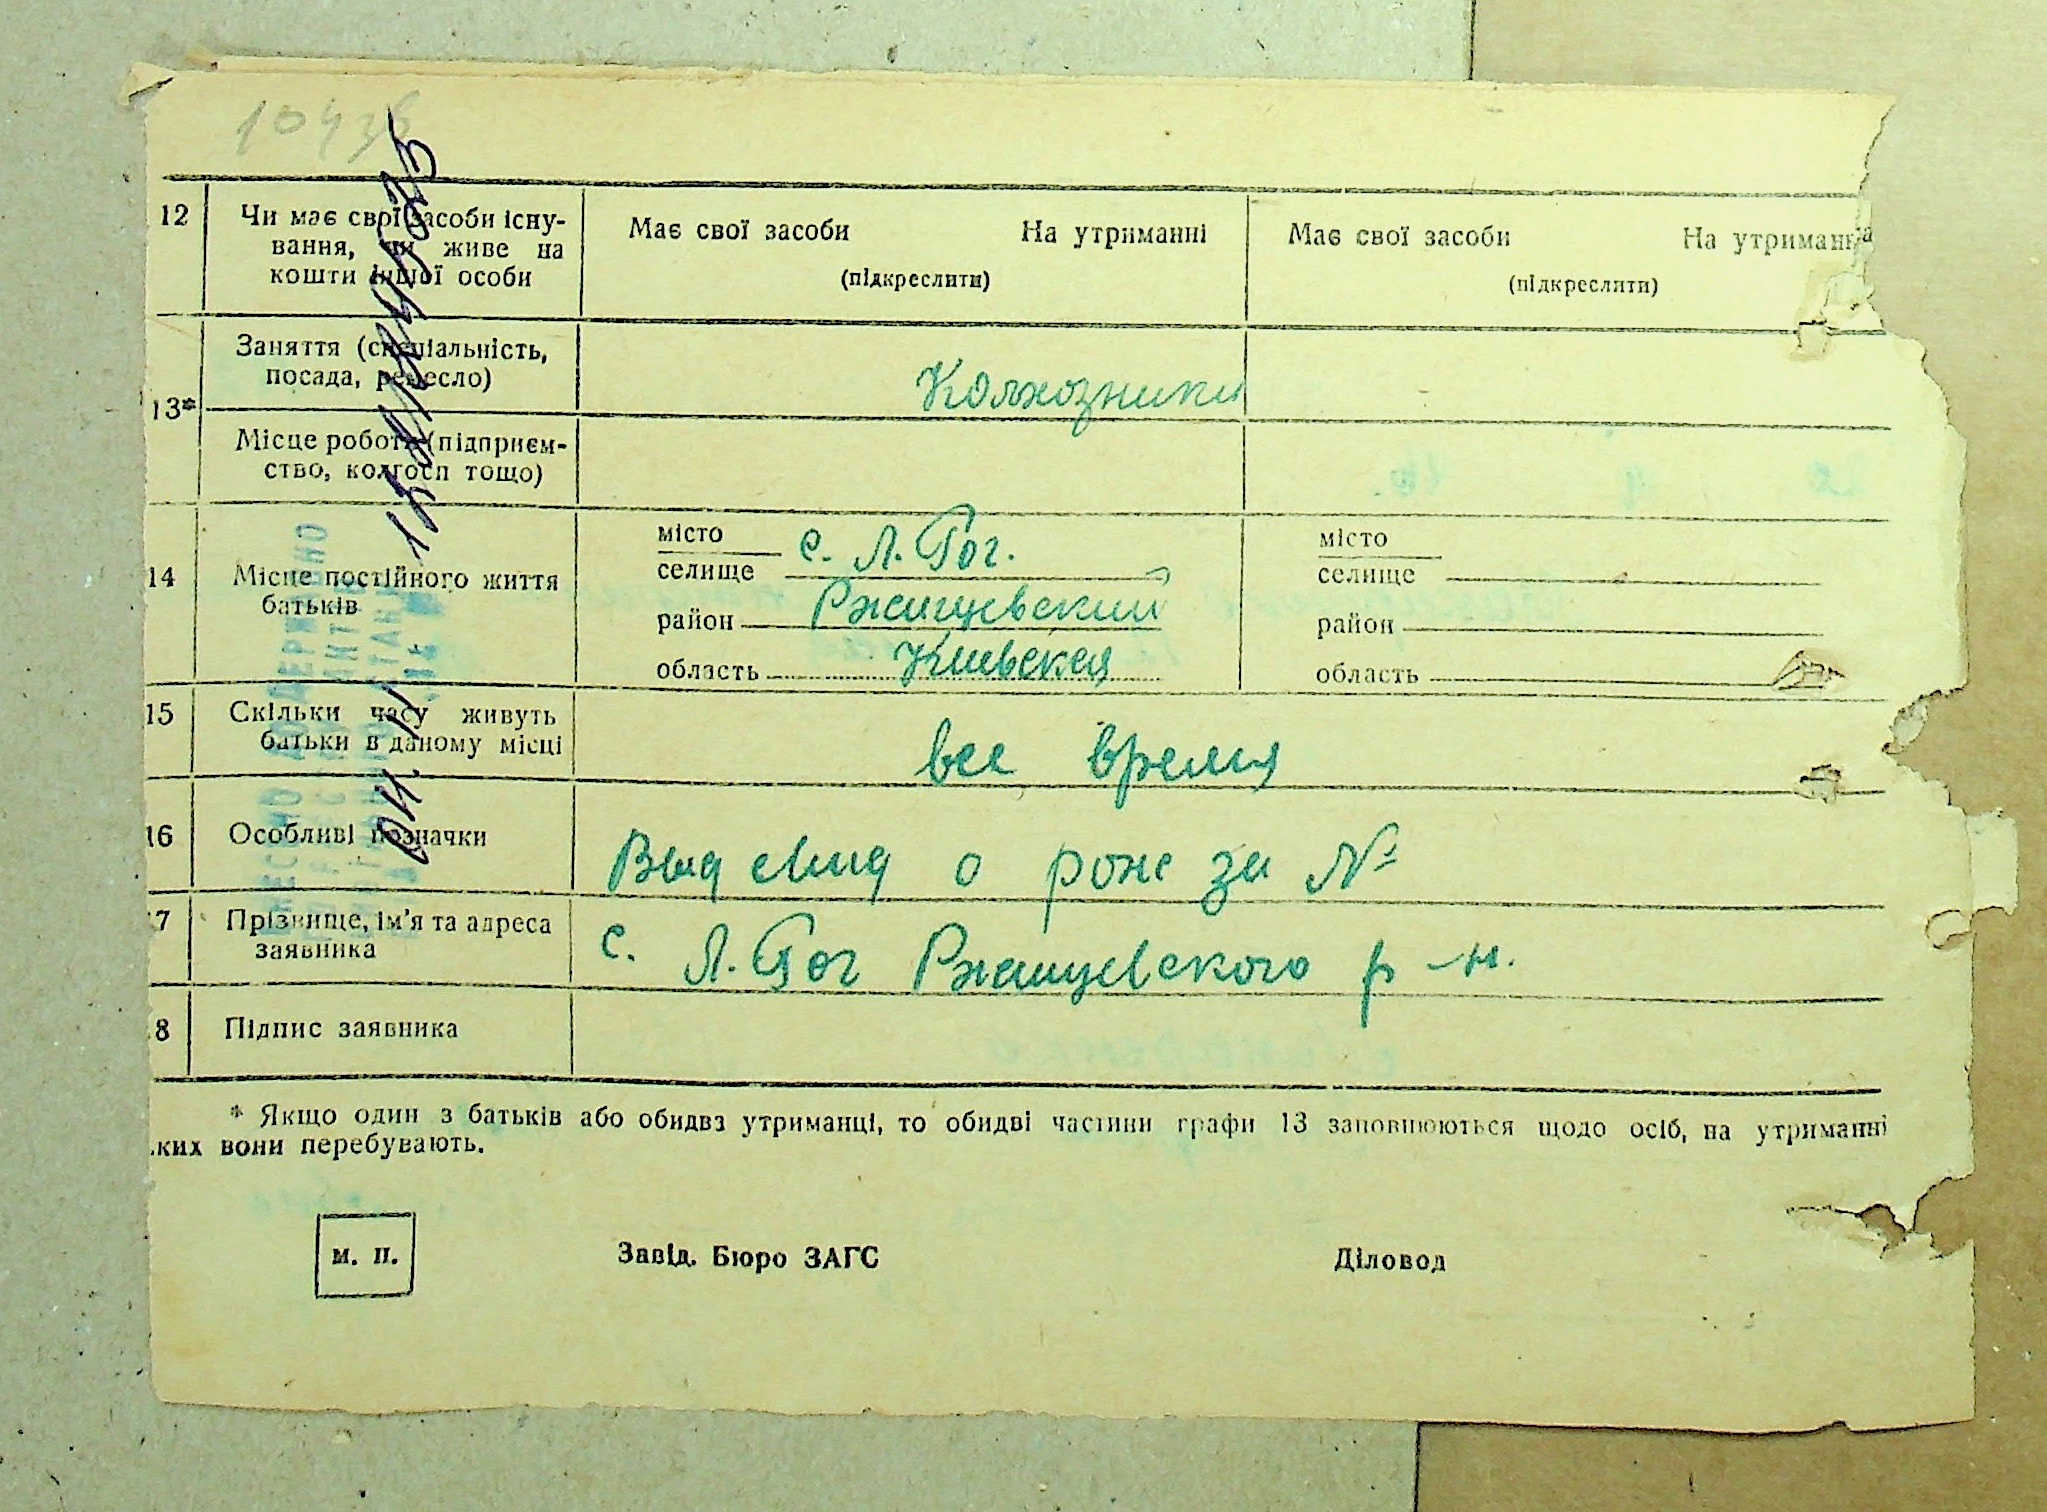 12 Чи має свої засоби існу- Має свої засоби На утриманні Має свої засоби На утриманн
вання, чи живе на
кошти іншої особи (підкреслити) (підкреслити)
Заняття (спеціальність,
посада, ремесло) Колхозники
13*
Місце роботи (підприєм-
ство, колгосп тощо)
місто с. Л. Гог. місто
14 Місце постійного життя селище селище
батьків район Ржищевский район
область Киевская область
15 Скільки часу живуть
батьки в даному місці все время
16 Особливі позначки Выд свид о рож за №
7 Прізвище, ім'я та адреса
заявника с. Л. Гог Ржищевского р-н.
8 Підпис заявника
* Якщо один з батьків або обидва утриманці, то обидві частини графи 13 заповнюються щодо осіб, на утриманні
ких вони перебувають.
м. п. Завід. Бюро ЗАГС Діловод